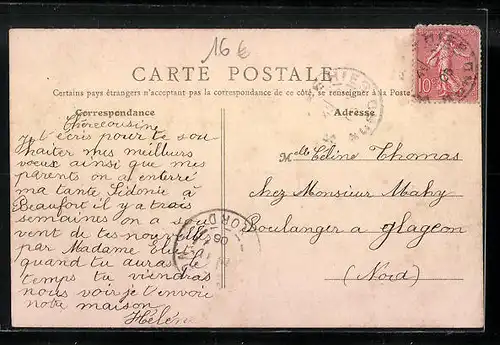 16€
CARTE POSTALE
Certains pays étrangers n'acceptant pas la correspondance de ce côté, se renseigner à la Poste
Correspondance
Adresse
Chère cousine
je t'écris pour te sou
haiter mes meilleurs
voeux ainsi que mes
parents on a enterré
ma tante Sidonie à
Beaufort il y a trois
semaines on a sou
vent de tes nouvelles
par Madame
quand tu auras le
temps tu viendras
nous voir je t'envoie
notre maison
Hélène
Melle Céline Thomas
chez Monsieur Mahy
Boulanger a glageon
(Nord)
10